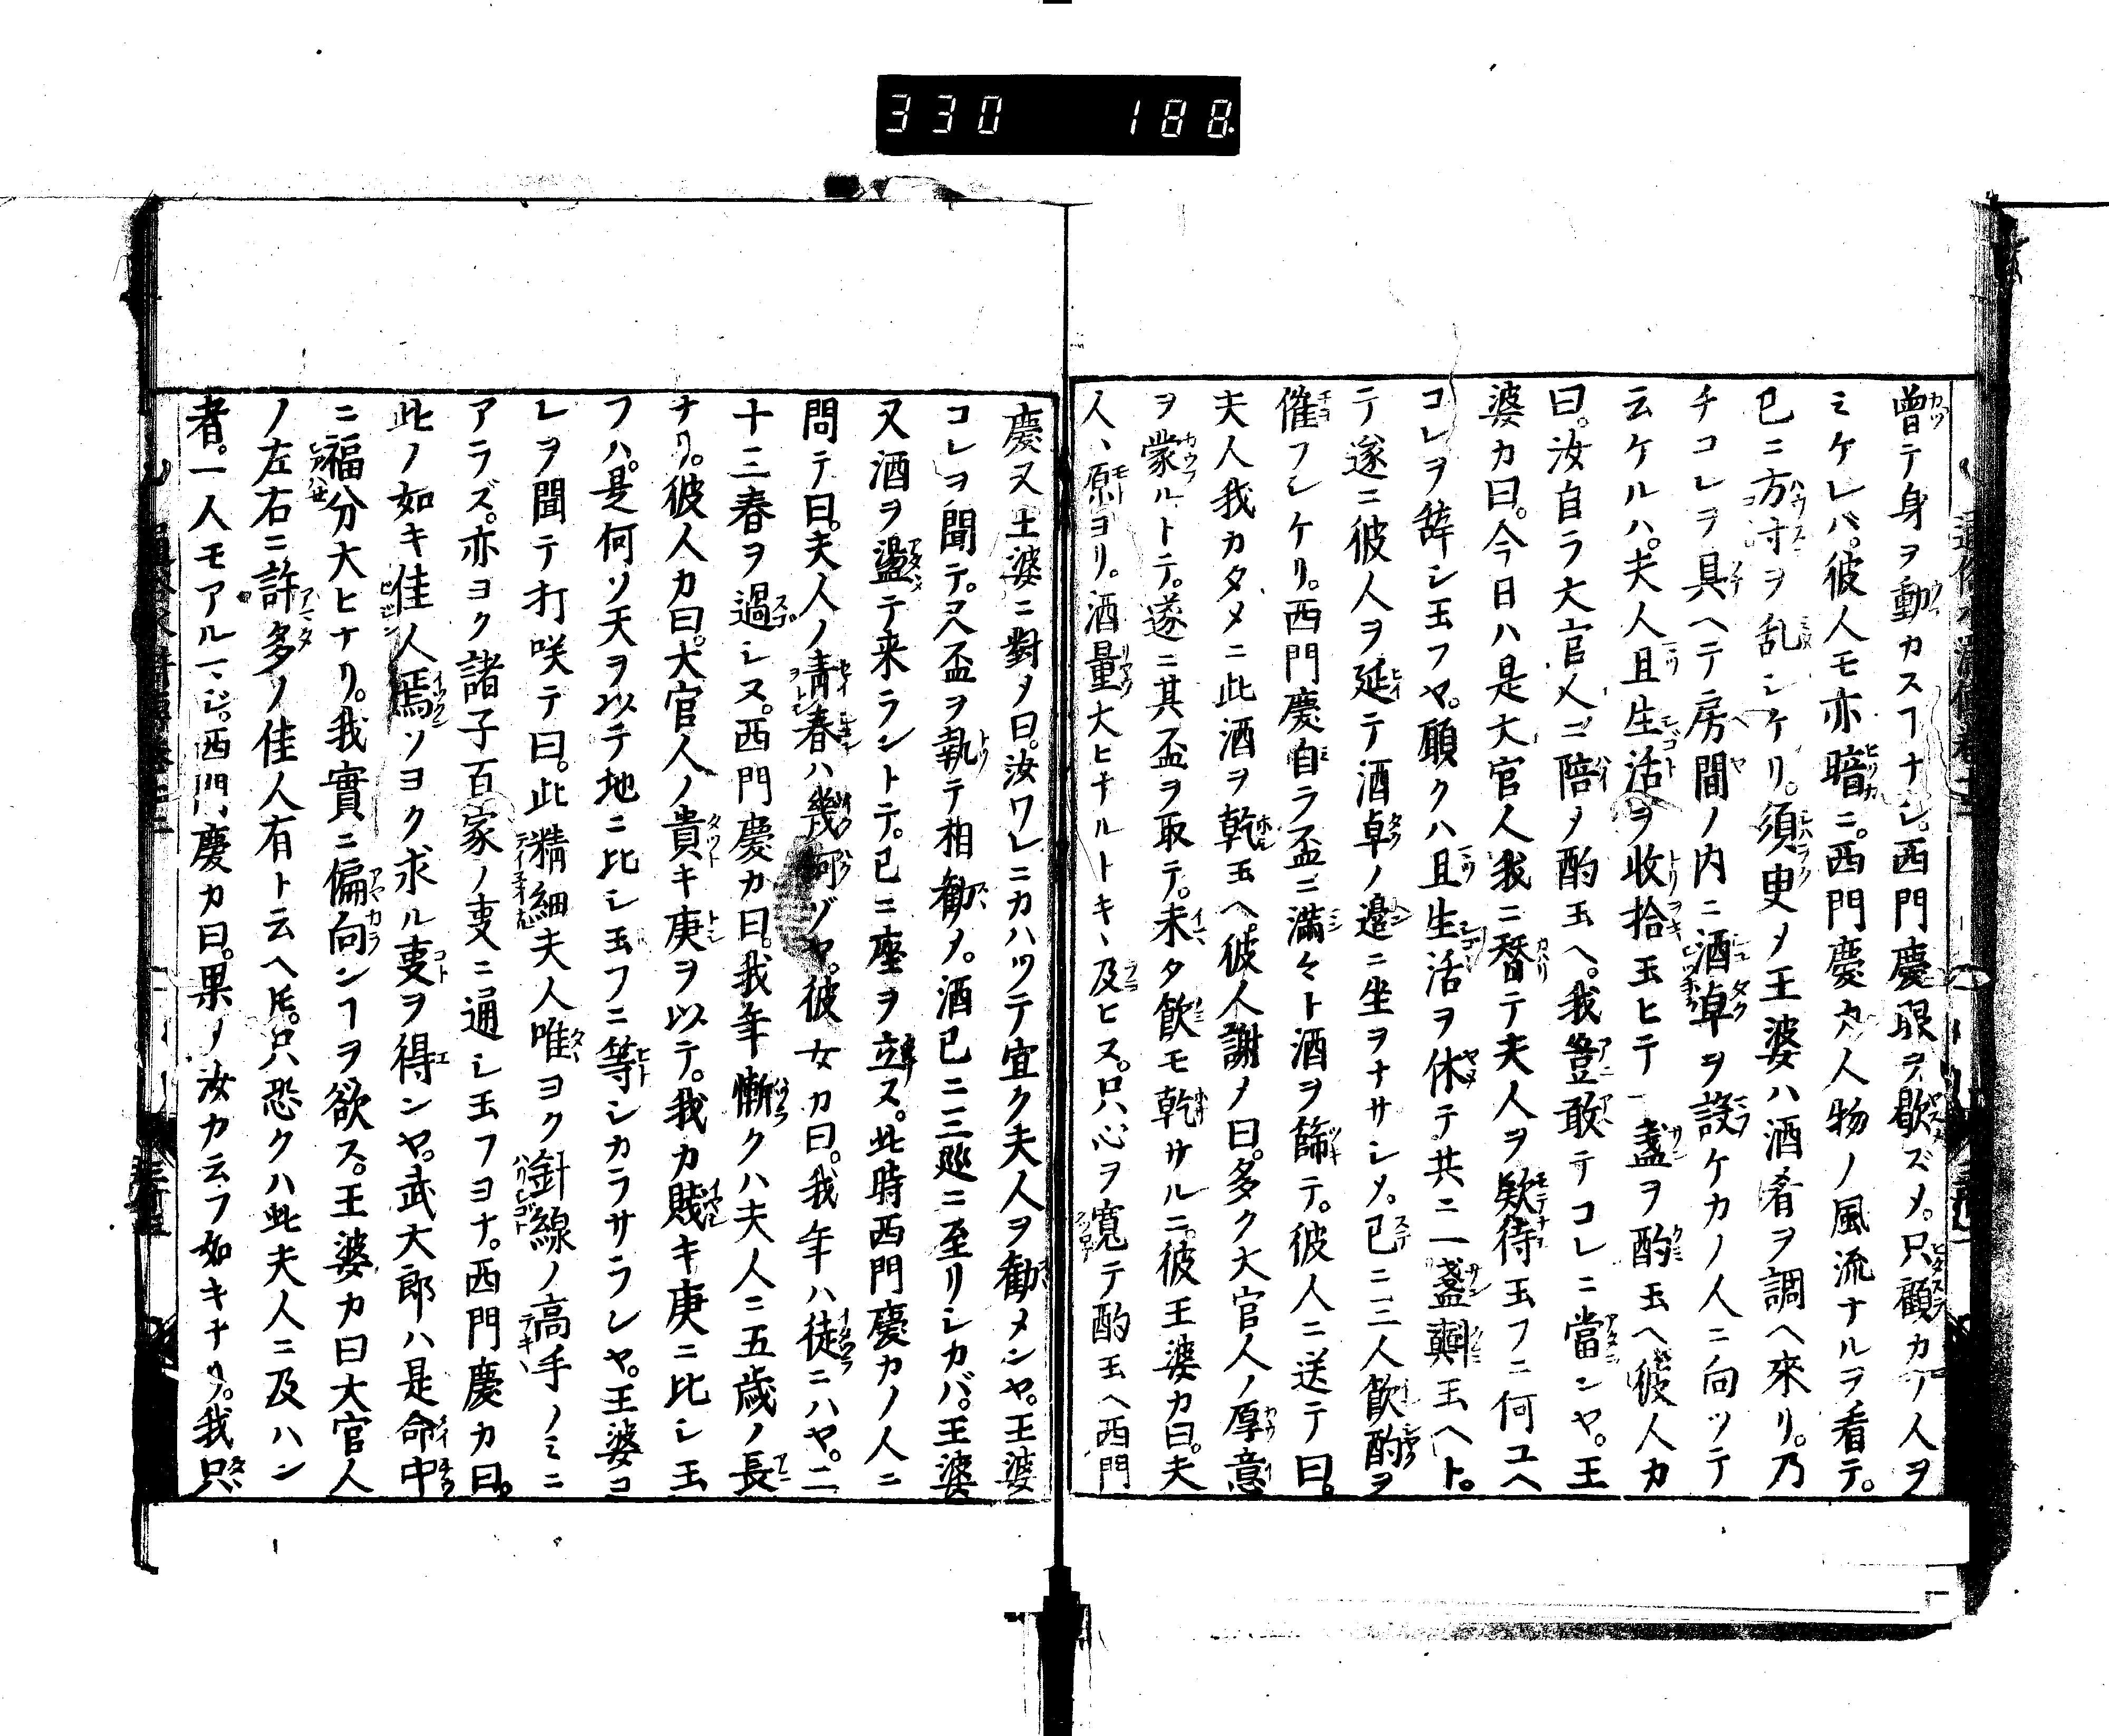 330 188
曾テ身ヲ動カスヿナシ。西門慶眼ヲ歇ズメ。只顧カノ人ヲ
ミケレバ。彼人モ亦暗ニ。西門慶カ人物ノ風流ナルヲ看テ。
已ニ方寸ヲ乱シケリ。須臾メ王婆ハ酒肴ヲ調ヘ來リ。乃
チコレヲ具ヘテ房間ノ内ニ酒卓ヲ設ケカノ人ニ向ツテ
云ケルハ。夫人且生活ヲ收拾玉ヒテ一盞ヲ酌玉ヘ彼人カ
曰。汝自ラ大官人ニ陪メ酌玉ヘ。我豈敢テコレニ當ンヤ。王
婆カ曰。今日ハ是大官人我ニ替テ夫人ヲ欵待玉フニ何ユヘ
コレヲ辞シ玉フヤ。願クハ且生活ヲ休テ共ニ一盞㪺玉ヘト。
テ遂ニ彼人ヲ延テ酒卓ノ邉ニ坐ヲナサシメ。已ニ三人飮酌ヲ
催フシケリ。西門慶自ラ盃ニ滿々ト酒ヲ篩テ。彼人ニ送テ曰。
夫人我カタメニ此酒ヲ乾玉ヘ。彼人謝メ曰。多ク大官人ノ厚意
ヲ蒙ルトテ。遂ニ其盃ヲ取テ。未タ飮モ乾サルニ。彼王婆カ曰。夫
人ヽ原ヨリ。酒量大ヒナルトキヽ及ヒヌ。只心ヲ寛テ酌玉ヘ西門
慶又王婆ニ對メ曰。汝ワレニカハツテ宜ク夫人ヲ勸メンヤ。王婆
コレヲ聞テ。又盃ヲ執テ相勸メ。酒已ニ三廵ニ至リシカバ。王婆
又酒ヲ盪テ来ラントテ。已ニ座ヲ立ヌ。此時西門慶カノ人ニ
問テ曰。夫人ノ青春ハ幾何ゾヤ。彼女カ曰。我年ハ徒ニハヤ。二
十三春ヲ過シヌ。西門慶カ曰。我年慚クハ夫人ニ五歳ノ長
ナリ。彼人カ曰。大官人ノ貴キ庚ヲ以テ。我カ賤キ庚ニ比シ玉
フハ。是何ソ天ヲ以テ地ニ比シ玉フニ等シカラサラレヤ。王婆コ
レヲ聞テ打咲テ曰。此精細夫人唯ヨク針線ノ高手ノミニ
アラズ。亦ヨク諸子百家ノ事ニ通シ玉フヨナ。西門慶カ曰。
此ノ如キ佳人焉ソヨク求ル事ヲ得ンヤ。武大郎ハ是命中
ニ福分大ヒナリ。我實ニ偏向ンヿヲ欲ス。王婆カ曰大官人
ノ左右ニ許多ノ佳人有ト云ヘ𪜈。只恐クハ此夫人ニ及ハン
者。一人モアルマジ。西門慶カ曰。果ノ汝カ云フ如キナリ。我只